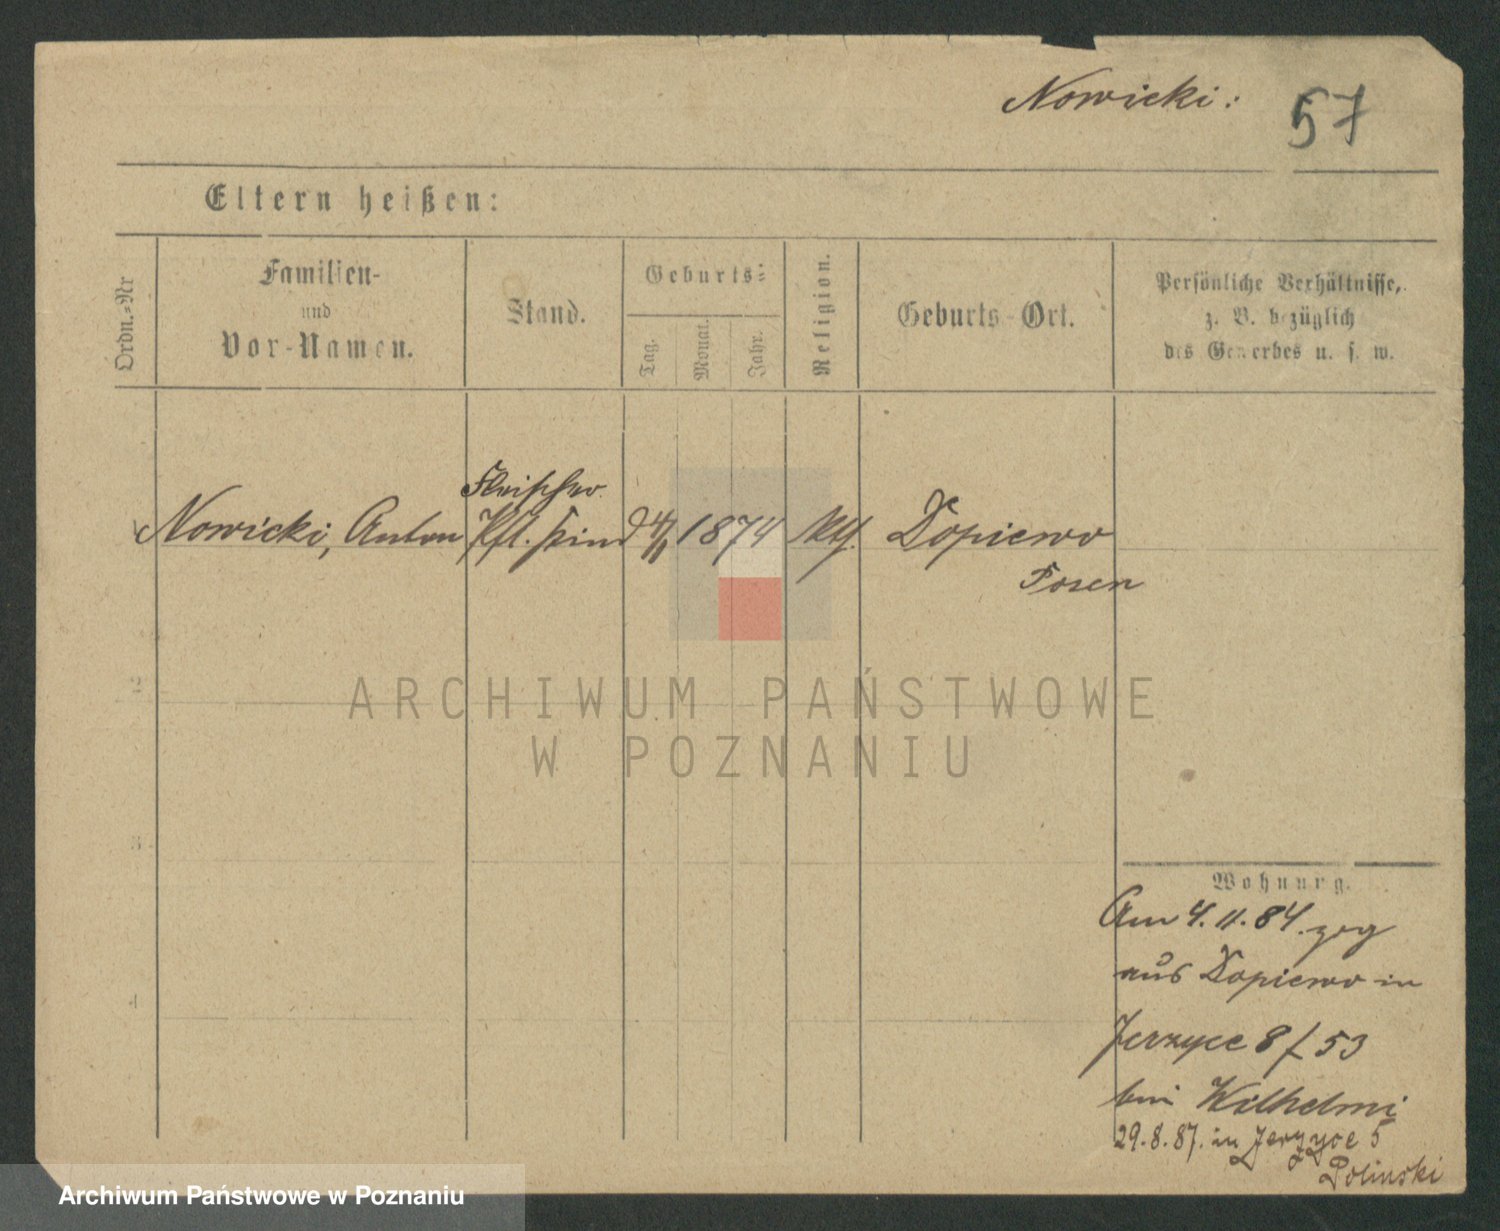 Nowicki: 57
Eltern heißen:
Ordn.=Nr
Familien-
und
Vor-Namen.
Stand.
Geburts=
Tag.
Monat.
Jahr.
Religion.
Geburts-Ort.
Persönliche Verhältnisse,
z. B. bezüglich
des Gewerbes u. s. w.
Fleischer
Nowicki, Anton Pfl. Kind 4/11 1874 kth. Dopiewo
Posen
2
ARCHIWUM PAŃSTWOWE
W POZNANIU
3
Wohnung.
Am 4.11.84. zog
aus Dopiewo in
4
Jerzyce 8 / 53
bei Wilhelmi
29.8.87. in Jerzyce 5
Polinski
Archiwum Państwowe w Poznaniu